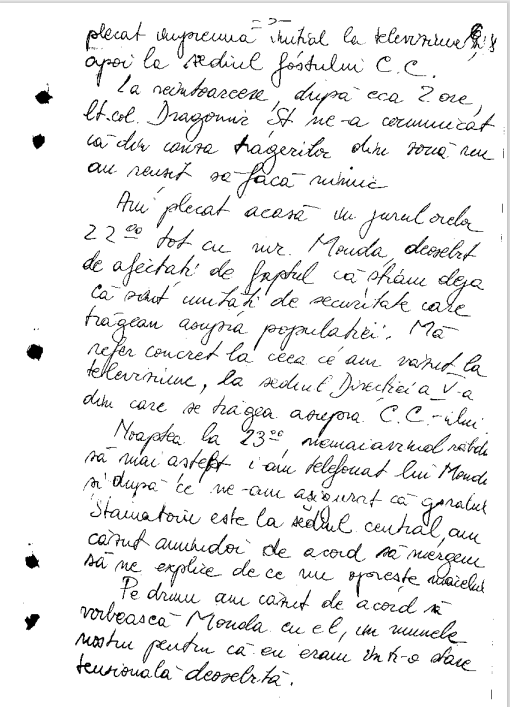 - 2 -
plecat împreună inițial la televiziune și
apoi la sediul fostului C.C.
La reîntoarcere, după cca 2 ore,
lt.col. Dragomir St ne-a comunicat
că din cauza tragerilor din zonă nu
au reușit să facă nimic
Am plecat acasă în jurul orelor
22⁰⁰ tot cu mr. Monda deosebit
de afectați de faptul că știam deja
că sînt unități de securitate care
trăgeau asupra populației. Mă
refer concret la ceea ce am văzut la
televiziune, la sediul Direcției a V-a
din care se trăgea asupra C.C.-ului.
Noaptea la 23⁰⁰, nemaiavînd răbdare
să mai aștept i-am telefonat lui Monda
și după ce ne-am asigurat că gralul
Stamatoiu este la sediul central, am
căzut amîndoi de acord să mergem
să ne explice de ce nu oprește măcelul
Pe drum am căzut de acord să
vorbească Monda cu el, în numele
nostru pentru că eu eram într-o stare
tensională deosebită.